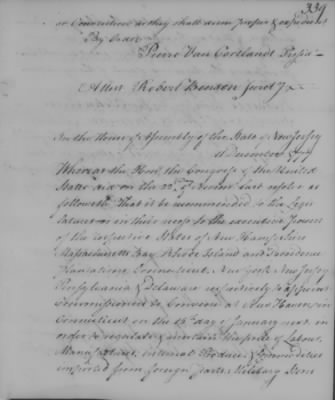 339
or Convention as they shall deem proper & expedient
By order
Pierre Van Cortlandt Presid
Attest Robert Benson Secret'y
In the House of Assembly of the State of New Jersey
December 1777
Whereas the Hon. the Congress of the United
States did on the 22d of Novem last resolve as
followeth That it be recommended to the Legis
latures or in their recess to the executive Power
of the respective States of New Hampshire
Massachusetts Bay Rhode Island and Providence
Plantations, Connecticut, New York, New Jersey
Pensylvania & Delaware respectively to appoint
Commissioners to Convene at New Haven in
Connecticut on the 15th day of January next in
order to regulate & ascertain the price of Labour,
Manufactures, internal Produce & Commodities
imported from foreign Parts, Military Stores